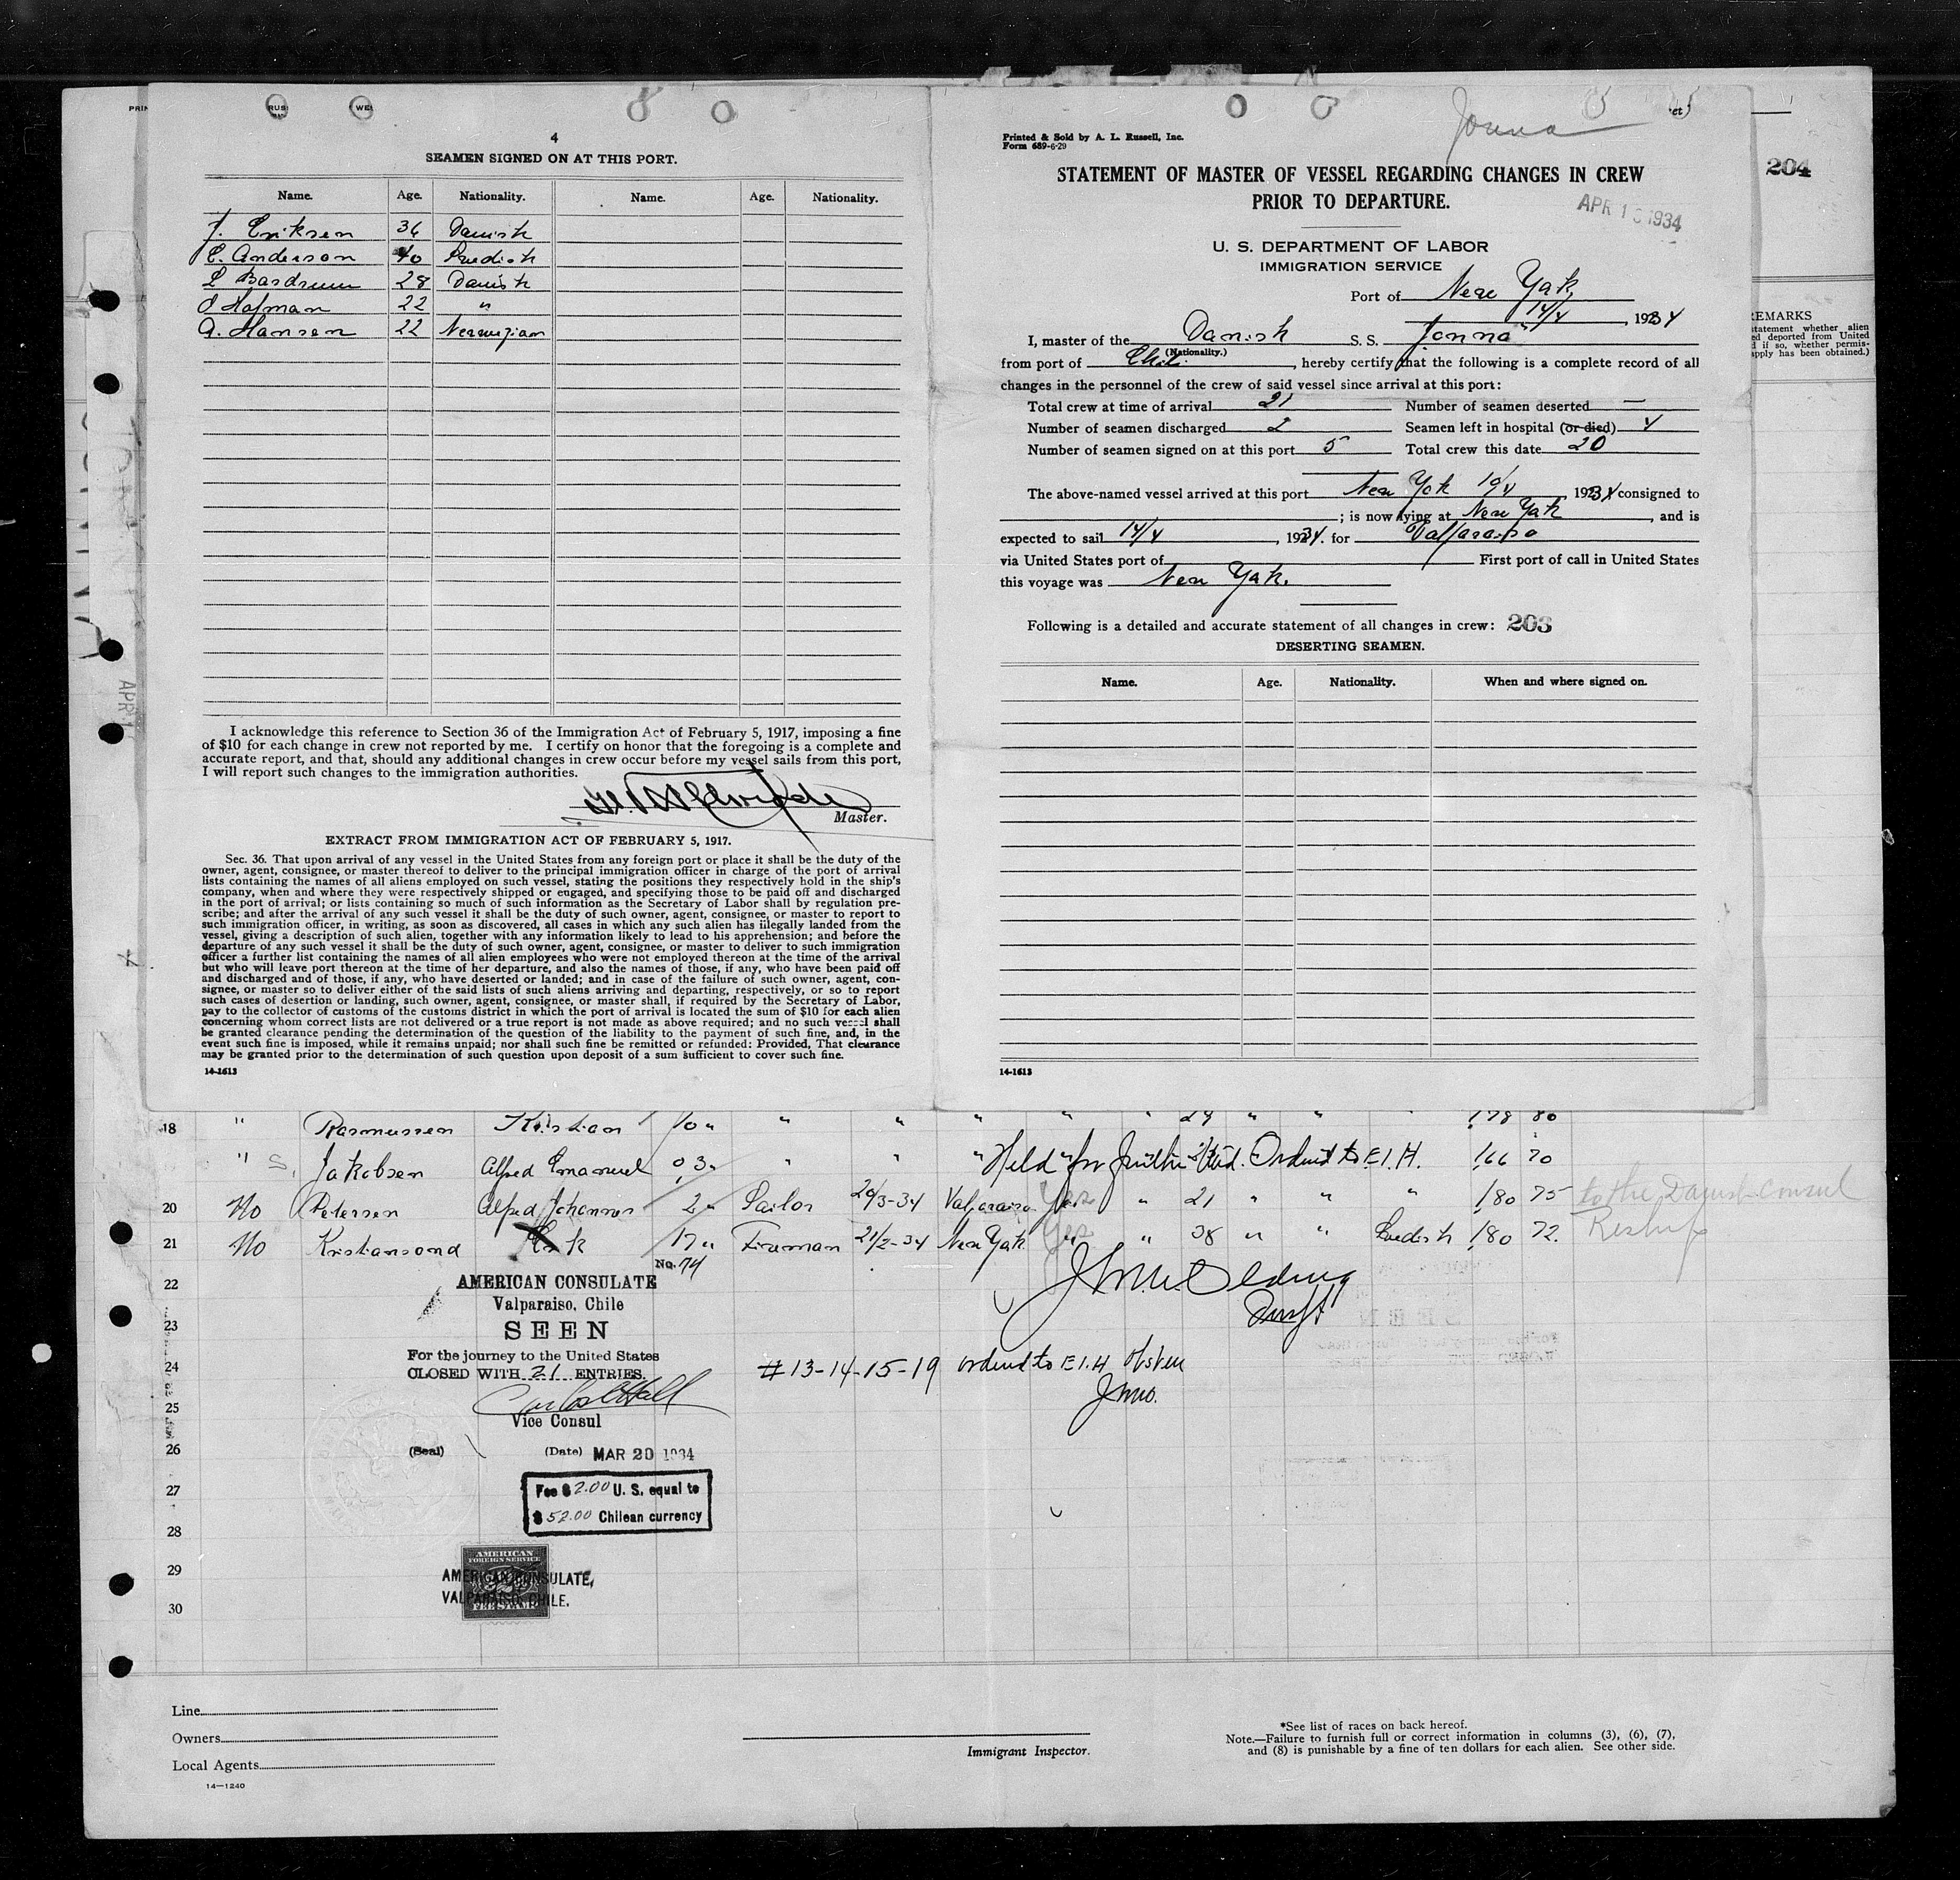 4
SEAMEN SIGNED ON AT THIS PORT.
Name. Age. Nationality. Name. Age. Nationality.
J. Eriksen 36 Danish
C. Anderson 40 Swedish
L Bardrum 28 Danish
O Hofman 22 "
A. Hansen 22 Norwegian
I acknowledge this reference to Section 36 of the Immigration Act of February 5, 1917, imposing a fine
of $10 for each change in crew not reported by me. I certify on honor that the foregoing is a complete and
accurate report, and that, should any additional changes in crew occur before my vessel sails from this port,
I will report such changes to the immigration authorities.
Master.
EXTRACT FROM IMMIGRATION ACT OF FEBRUARY 5, 1917.
Sec. 36. That upon arrival of any vessel in the United States from any foreign port or place it shall be the duty of the
owner, agent, consignee, or master thereof to deliver to the principal immigration officer in charge of the port of arrival
lists containing the names of all aliens employed on such vessel, stating the positions they respectively hold in the ship's
company, when and where they were respectively shipped or engaged, and specifying those to be paid off and discharged
in the port of arrival; or lists containing so much of such information as the Secretary of Labor shall by regulation pre-
scribe; and after the arrival of any such vessel it shall be the duty of such owner, agent, consignee, or master to report to
such immigration officer, in writing, as soon as discovered, all cases in which any such alien has illegally landed from the
vessel, giving a description of such alien, together with any information likely to lead to his apprehension; and before the
departure of any such vessel it shall be the duty of such owner, agent, consignee, or master to deliver to such immigration
officer a further list containing the names of all alien employees who were not employed thereon at the time of the arrival
but who will leave port thereon at the time of her departure, and also the names of those, if any, who have been paid off
and discharged and of those, if any, who have deserted or landed; and in case of the failure of such owner, agent, con-
signee, or master so to deliver either of the said lists of such aliens arriving and departing, respectively, or so to report
such cases of desertion or landing, such owner, agent, consignee, or master shall, if required by the Secretary of Labor,
pay to the collector of customs of the customs district in which the port of arrival is located the sum of $10 for each alien
concerning whom correct lists are not delivered or a true report is not made as above required; and no such vessel shall
be granted clearance pending the determination of the question of the liability to the payment of such fine, and, in the
event such fine is imposed, while it remains unpaid; nor shall such fine be remitted or refunded: Provided, That clearance
may be granted prior to the determination of such question upon deposit of a sum sufficient to cover such fine.
14-1613
Jonna
Printed & Sold by A. L. Russell, Inc.
Form 689-6-29
STATEMENT OF MASTER OF VESSEL REGARDING CHANGES IN CREW
PRIOR TO DEPARTURE.
APR 1 1934
U. S. DEPARTMENT OF LABOR
IMMIGRATION SERVICE
Port of New York
14/4, 1934
I, master of the Danish S. S. "Jonna"
(Nationality.)
from port of Chile, hereby certify that the following is a complete record of all
changes in the personnel of the crew of said vessel since arrival at this port:
Total crew at time of arrival 21 Number of seamen deserted —
Number of seamen discharged 2 Seamen left in hospital (or died) 4
Number of seamen signed on at this port 5 Total crew this date 20
The above-named vessel arrived at this port New York 10/4, 1934 consigned to
; is now lying at New York, and is
expected to sail 14/4, 1934. for Valparaiso
via United States port of First port of call in United States
this voyage was New York.
Following is a detailed and accurate statement of all changes in crew: 203
DESERTING SEAMEN.
Name. Age. Nationality. When and where signed on.
14-1613
204
REMARKS
statement whether alien
ed deported from United
d if so, whether permis-
apply has been obtained.)
APR 1
18 " Rasmussen Kristian 10 " " " " " " 24 " " " 178 80
" S. Jakobsen Alfred Emanuel 03 " " " " Held for Ordered to E.I.H. 166 70
20 No Petersen Alfred Johannes 2 " Sailor 20/3-34 Valparaiso Yes " 21 " " " 180 75 to the Danish Consul
21 No Kristiansond Erik 17 " Fireman 21/2-34 New York Yes " 38 " " Swedish 180 72. Reship
22
23
24
25
26
27
28
29
30
No. 74
AMERICAN CONSULATE
Valparaiso, Chile
SEEN
For the journey to the United States
CLOSED WITH 21 ENTRIES.
Vice Consul
(Seal) (Date) MAR 20 1934
Fee $ 2.00 U. S. equal to
$ 52.00 Chilean currency
AMERICAN
FOREIGN SERVICE
FEE STAMP
AMERICAN CONSULATE,
VALPARAISO, CHILE.
# 13-14-15-19 ordered to E.I.H
Line
Owners
Local Agents
14—1240
Immigrant Inspector.
*See list of races on back hereof.
Note.—Failure to furnish full or correct information in columns (3), (6), (7),
and (8) is punishable by a fine of ten dollars for each alien. See other side.